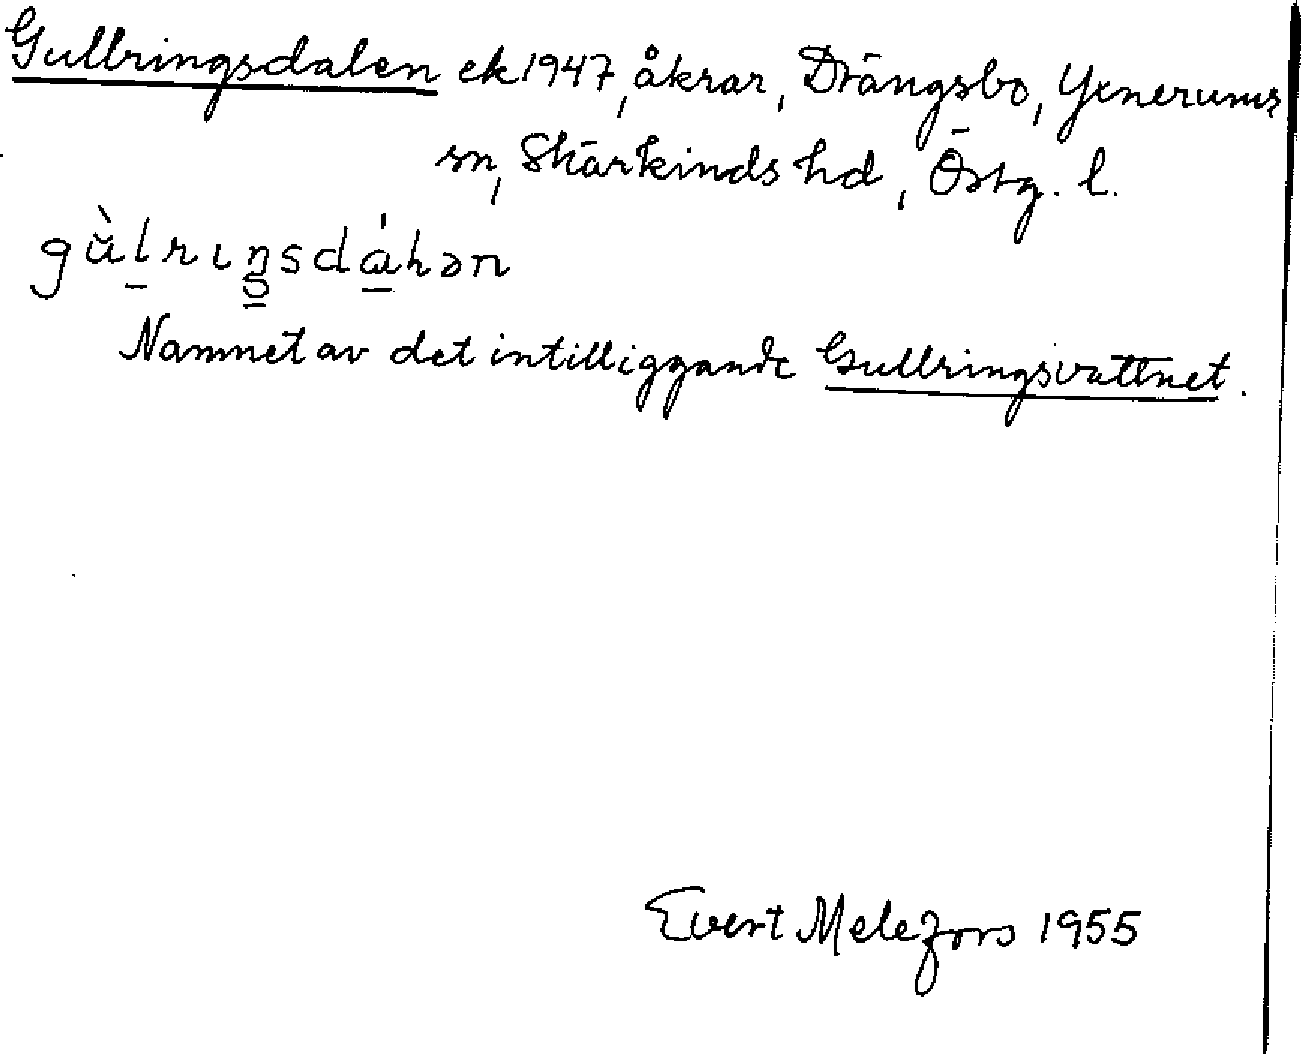 Gullringsdalen ek 1947, åkrar, Drängsbo, Yxnerums
sn, Skärkinds hd, Östg. l.
gùlrıŋsdáhən
Namnet av det intilliggande Gullringsvattnet.
Evert Melefors 1955